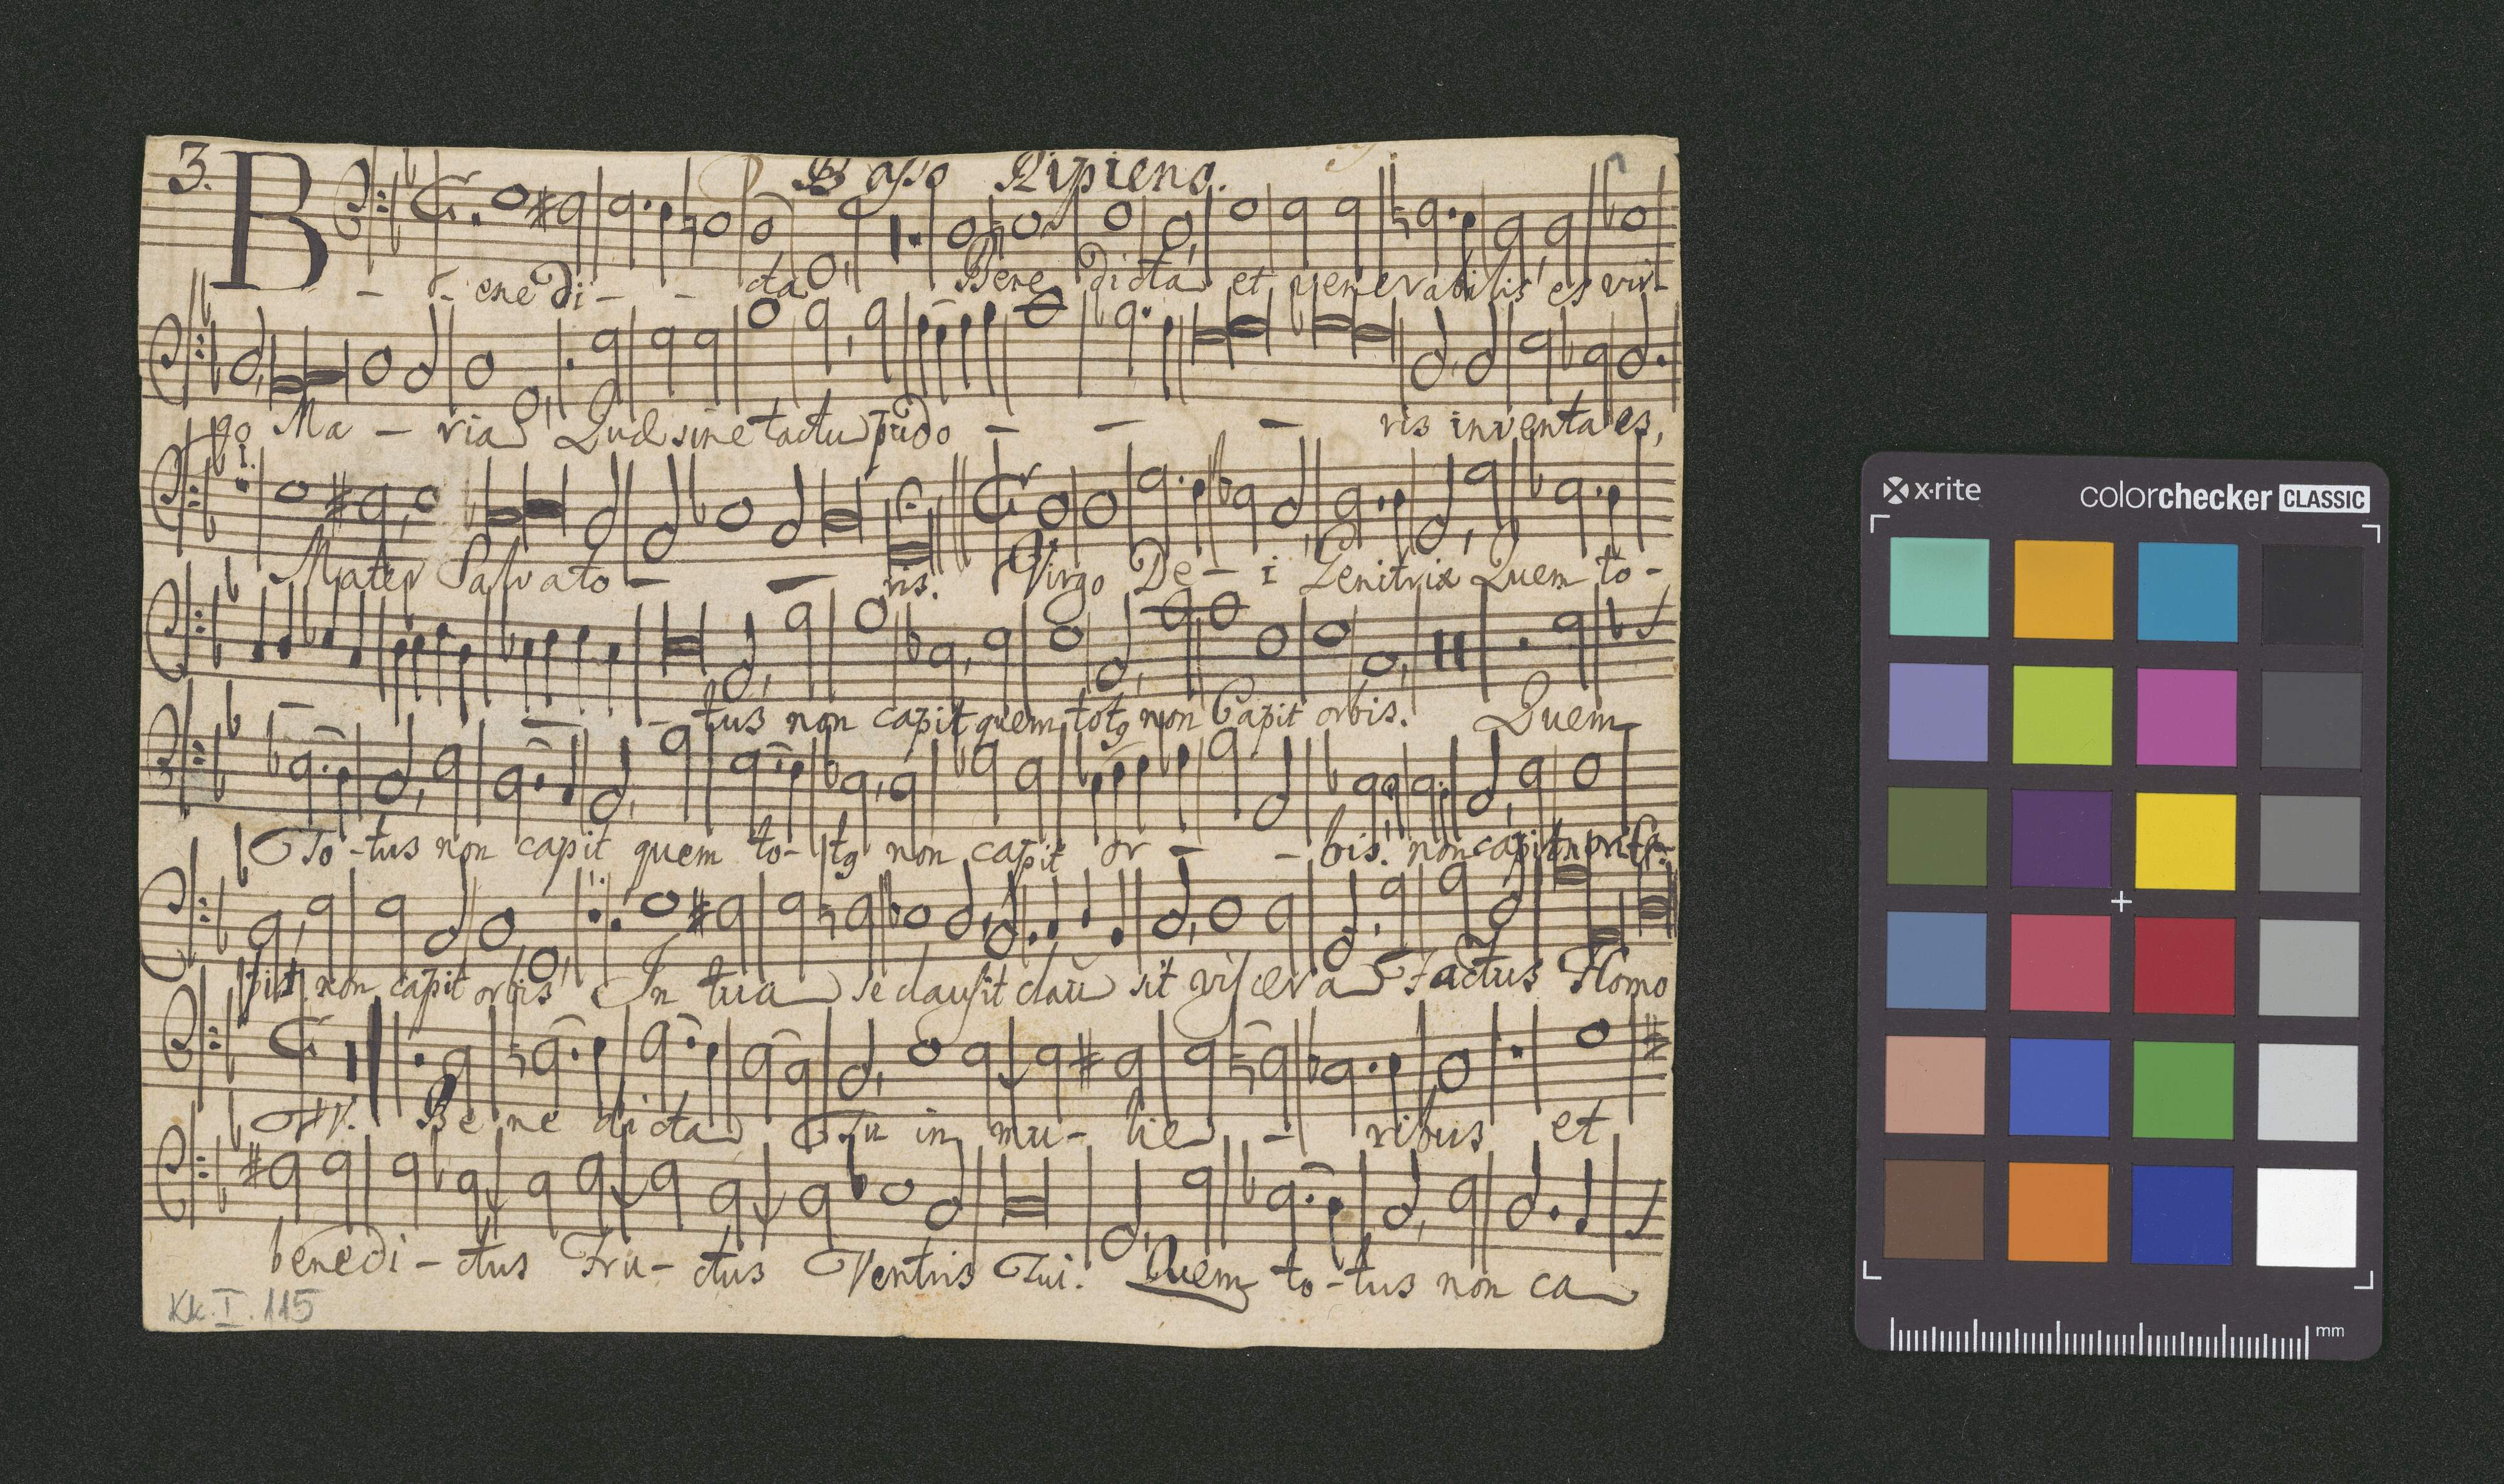 3. Basso Ripieno.
B - - enedi - - cta Bene dicta et venerabilis es vir-
go Ma - ria Quae sine tactu pudo - - - ris inventa es,
Mater Salvato - - ris. Virgo De - i Genitrix Quem to -
- - - tus non capit quem totg non Capit orbis. Quem
To - tus non capit quem to - tg non capit or - - bis. non capit
non capit orbis In tua se clausit clau sit viscera Factus Homo
V. Be ne dicta Tu in mu - lie - ribus et
benedi - ctus Fru - ctus Ventris Tui. Quem to - tus non ca
Kk. I. 115
x-rite colorchecker CLASSIC
mm